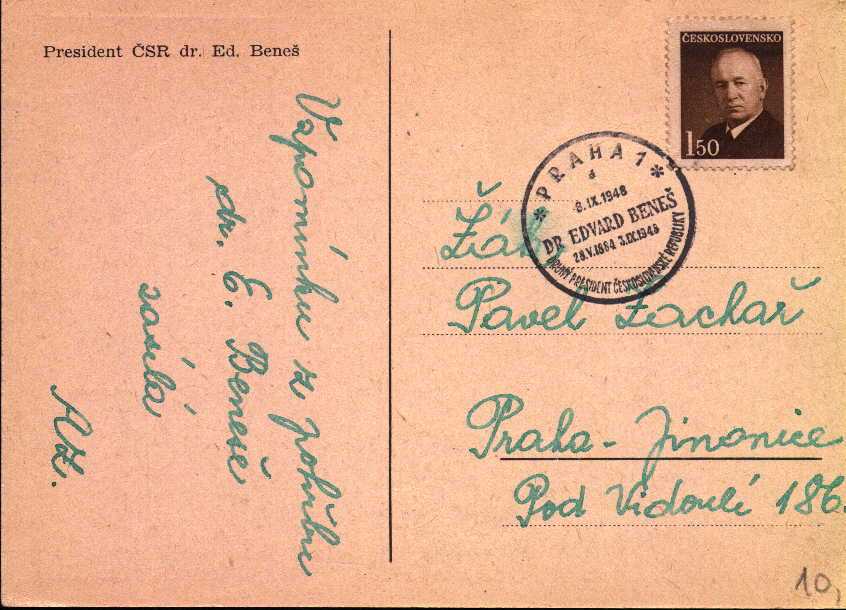 President ČSR dr. Ed. Beneš
Vzpomínku z pohřbu
dr. E. Beneše
zasílá
ČESKOSLOVENSKO
150
* PRAHA 1 *
a
8.IX.1948
DR EDVARD BENEŠ
28.V.1884 3.IX.1948
DRUHÝ PRESIDENT ČESKOSLOVENSKÉ REPUBLIKY
Žák
Pavel Zachař
Praha - Jinonice
Pod Vidoulí 186.
10,